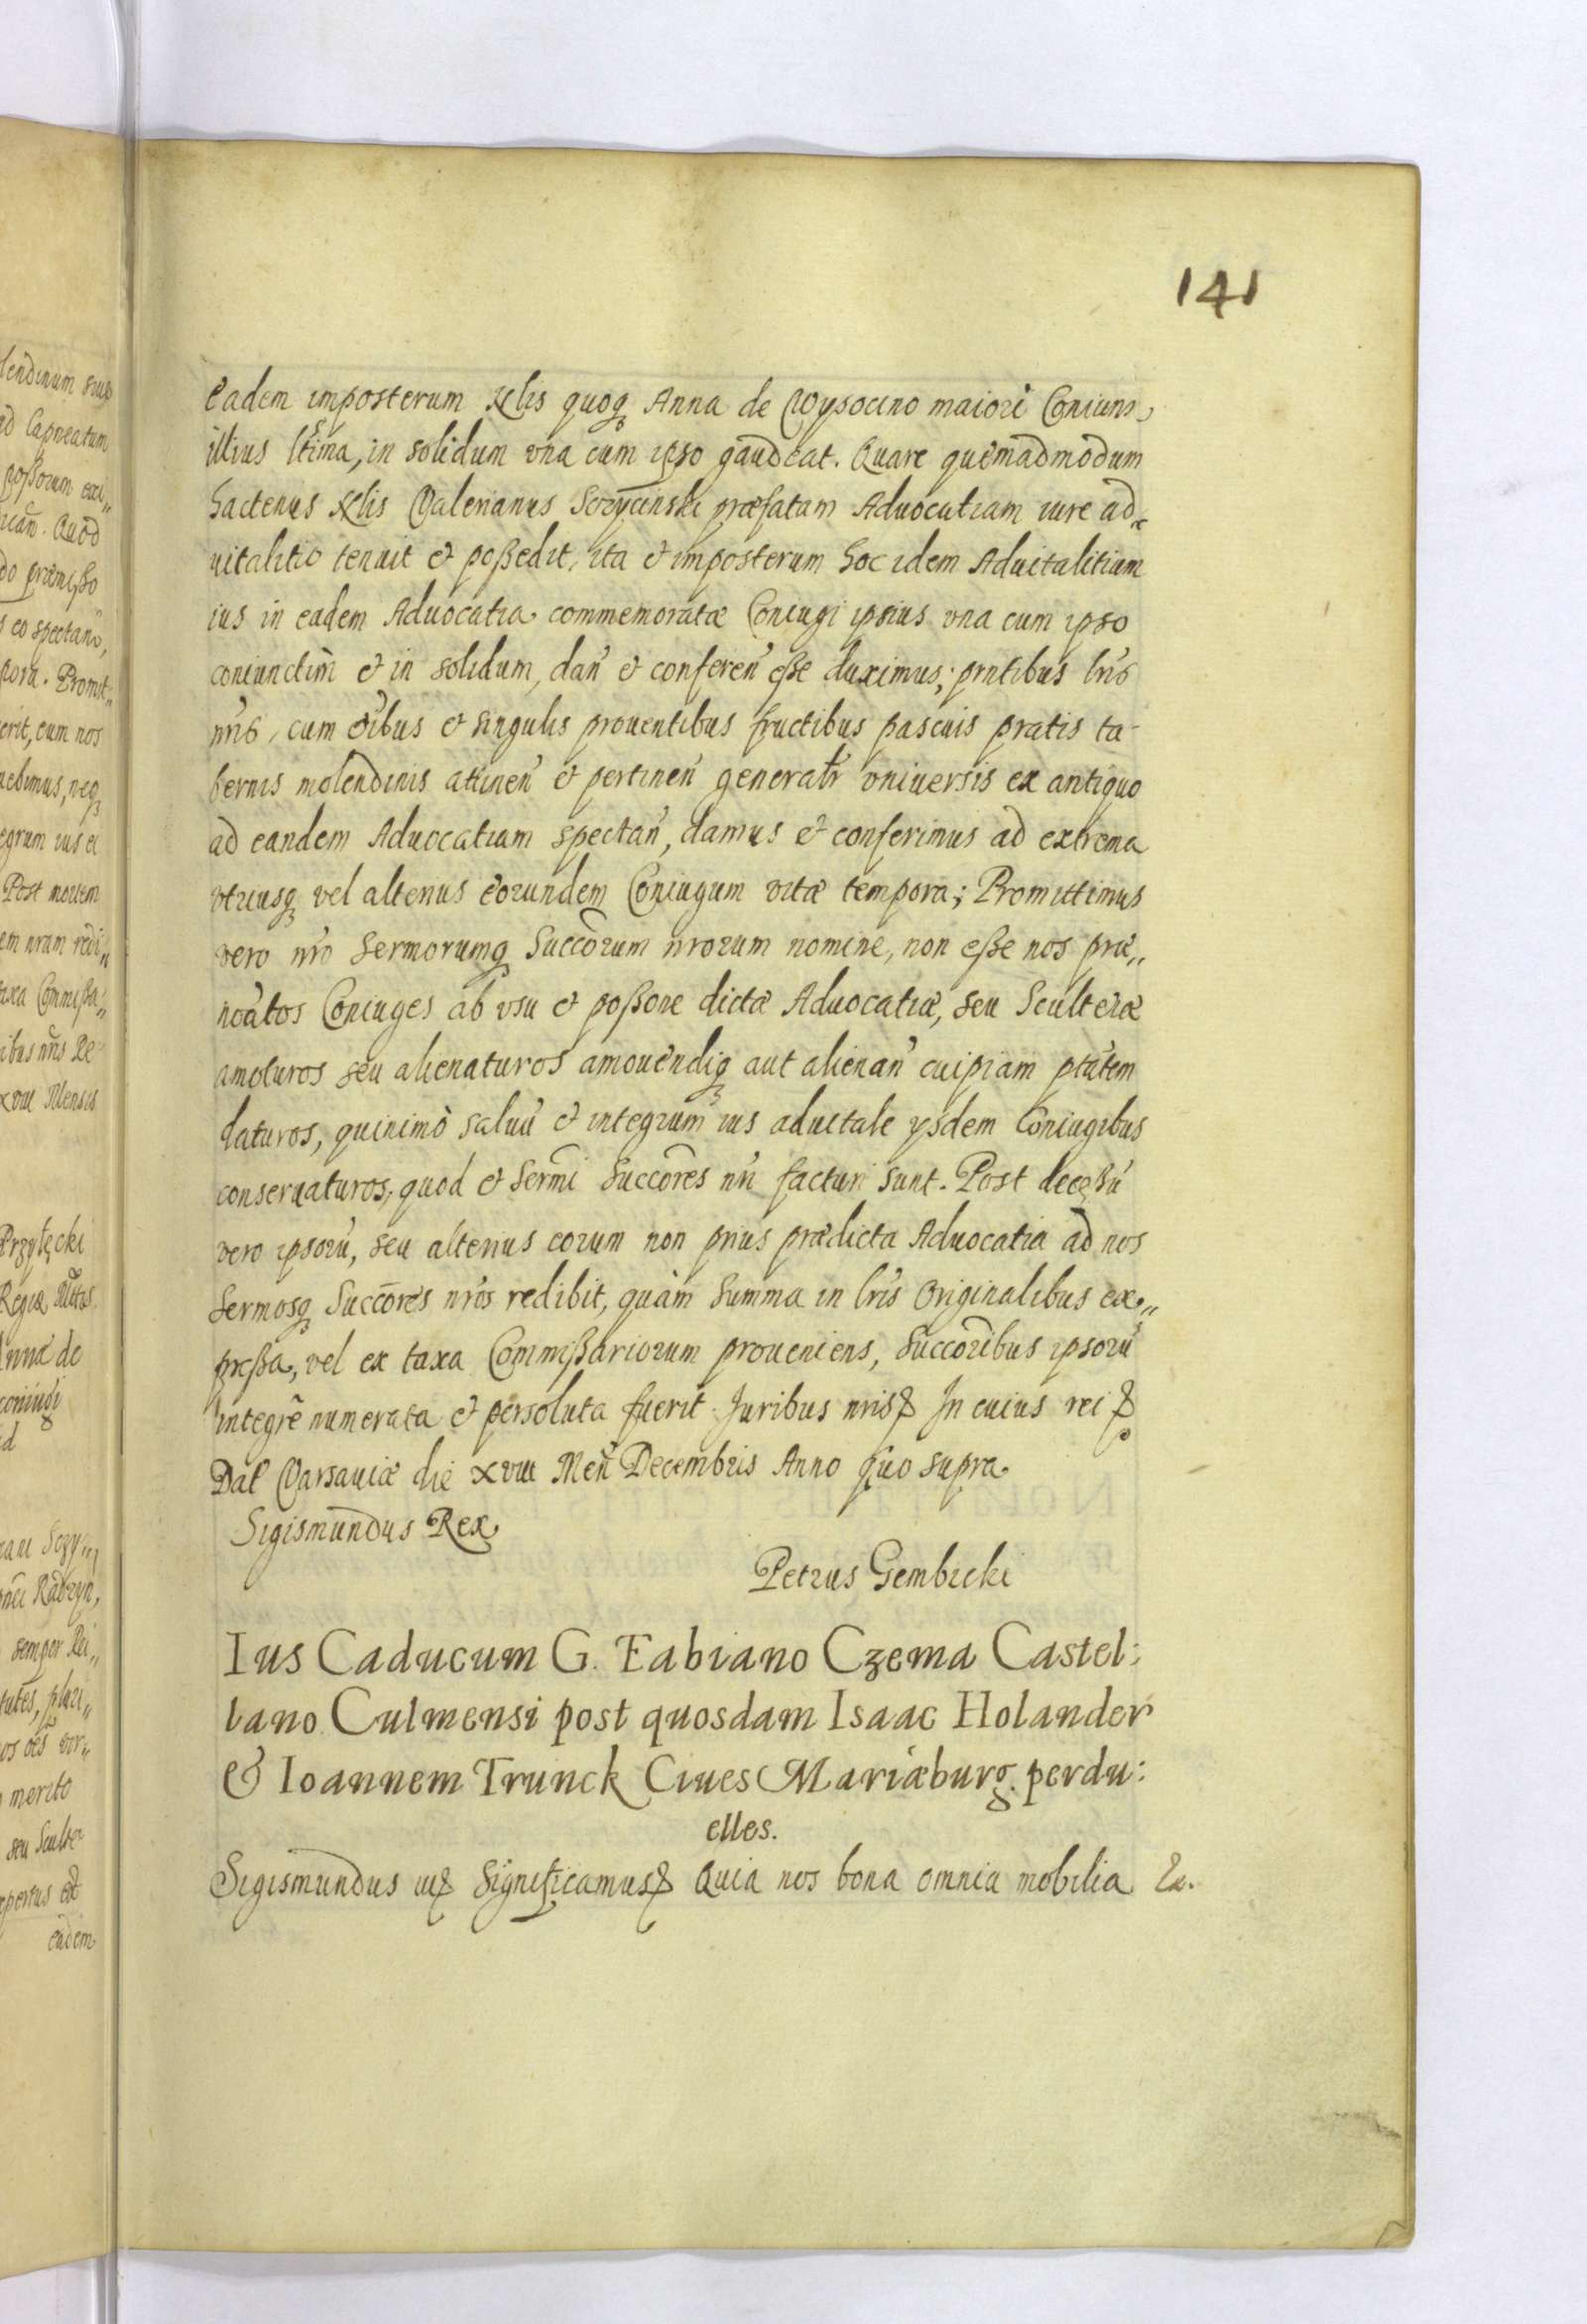 141
eadem imposterum Nlis quoq Anna de Wysocino maiori Coniunx
illius ltima, in solidum vna cum ipso gaudeat. Quare quemadmodum
hactenus Nlis Valerianus Sczycinski præfatam Aduocatiam iure ad
uitalitio tenuit & poßedit, ita & imposterum hoc idem Aduitalitium
ius in eadem Aduocatia commemoratæ Coniugi ipsius vna cum ipso
coniunctim & in solidum, dan̄ & conferen̄ eße duximus; pn̄tibus lr̄is
nr̄is, cum oībus & singulis prouentibus fructibus pascuis pratis ta-
bernis molendinis attinen̄ & pertinen̄ generalr̄ vniuersis ex antiquo
ad eandem Aduocatiam spectan̄, damus & conferimus ad extrema
vtriusq vel alterius eorundem Coniugum vitæ tempora; Promittimus
vero nr̄o Sermorumq Succōrum nrorum nomine, non eße nos præ„
noātos Coniuges ab vsu & poßone dictæ Aduocatiæ, seu Scultetiæ
amoturos seu alienaturos amouendiq aut alienan̄ cuipiam ptātem
daturos, quinimò saluū & integrum ius aduitale ysdem Coniugibus
conseruaturos, quod & Sermi Succōres nr̄i facturi sunt. Post deceßū
vero ipsorū, seu alterius eorum non prius prædicta Aduocatia ad nos
Sermosq Succōres nr̄os redibit, quàm Summa in lr̄is Originalibus ex„
preßa, vel ex taxa Commißariorum proueniens, Succōribus ipsorū
integrē numerata & persoluta fuerit. Juribus nris & In cuius rei &
Dat Varsauiæ die xviii Men̄ Decembris Anno quo supra
Sigismundus Rex
Petrus Gembicki
Ius Caducum G. Fabiano Czema Castel:
lano Culmensi post quosdam Isaac Holander
& Ioannem Trunck Ciues Mariæburg. perdu:
elles.
Sigismundus iii& Significamus& Quia nos bona omnia mobilia &.
lendinum siue
ad Capneatum
poßorum exi„
Quod
do præmißo
eo spectan̄,
Promit„
erit, cum nos
uebimus, neq
egrum ius ei
Post mortem
em nram redi„
axa Commißa„
ibus nr̄is Re
xviii Mensis
Przyłęcki
Regiæ Mttas
Annæ de
coniugi
id
Sczy„
Radzyn,
semper Rei„
plari„
os oēs vir„
merito
seu Scultet
eadem